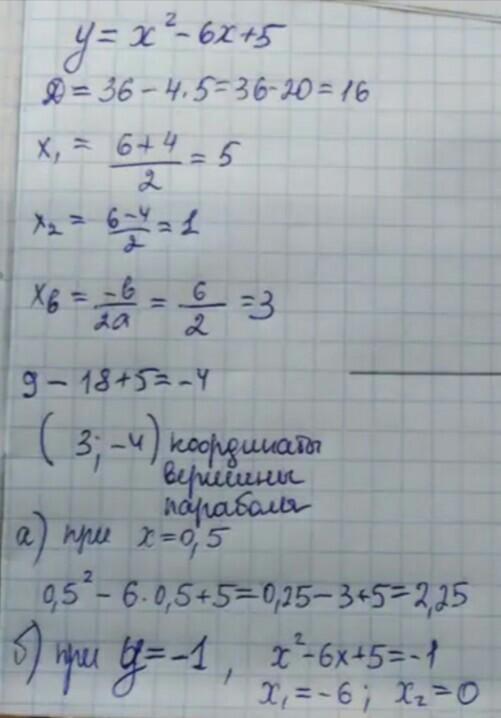 y = x² - 6x + 5
D = 36 - 4·5 = 36 - 20 = 16
x₁ = (6+4)/2 = 5
x₂ = (6-4)/2 = 1
xв = -в/2a = 6/2 = 3
9 - 18 + 5 = -4
(3; -4) координаты
вершины
параболы
а) при x = 0,5
0,5² - 6·0,5 + 5 = 0,25 - 3 + 5 = 2,25
б) при y = -1, x² - 6x + 5 = -1
x₁ = -6; x₂ = 0